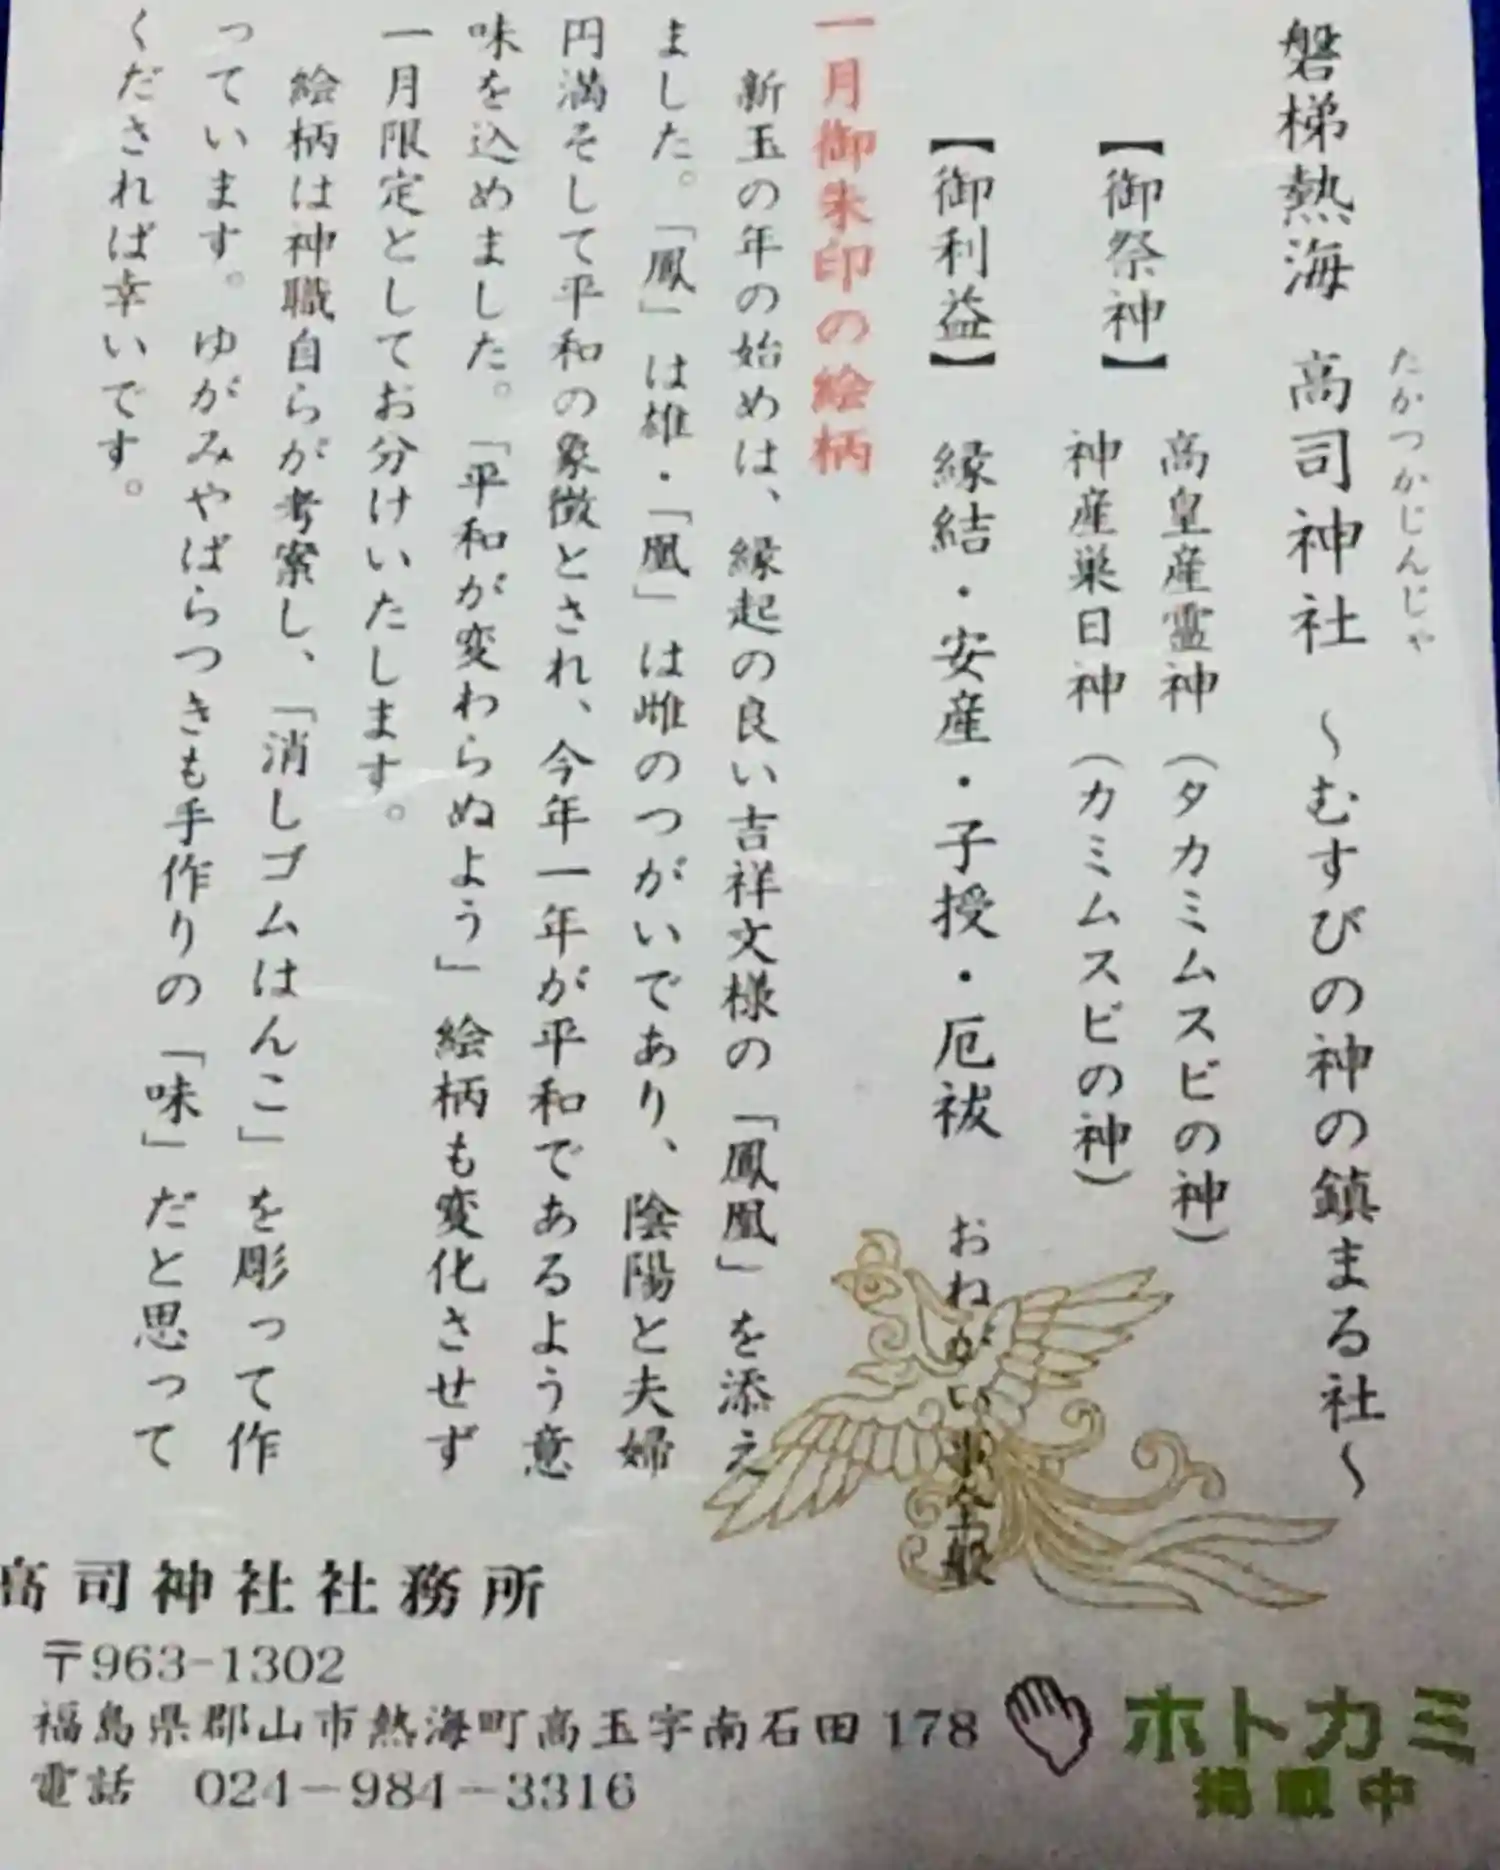 磐梯熱海 高司神社 ～むすびの神の鎮まる社～
たかつかじんじゃ
【御祭神】 高皇産霊神（タカミムスビの神）
神産巣日神（カミムスビの神）
【御利益】 縁結・安産・子授・厄祓 おねがい事全般
一月御朱印の絵柄
新玉の年の始めは、縁起の良い吉祥文様の「鳳凰」を添え
ました。「鳳」は雄・「凰」は雌のつがいであり、陰陽と夫婦
円満そして平和の象徴とされ、今年一年が平和であるよう意
味を込めました。「平和が変わらぬよう」絵柄も変化させず
一月限定としてお分けいたします。
絵柄は神職自らが考案し、「消しゴムはんこ」を彫って作
っています。ゆがみやばらつきも手作りの「味」だと思って
くだされば幸いです。
高司神社社務所
〒963-1302
福島県郡山市熱海町高玉字南石田178
電話 024－984－3316
ホトカミ
掲載中